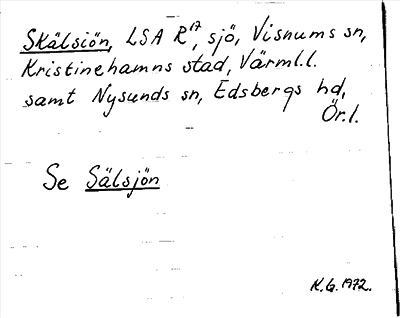 Skälsiön, LSA R¹⁷, sjö, Visnums sn,
Kristinehamns stad, Värml.l.
samt Nysunds sn, Edsbergs hd,
Ör.l.
Se Sälsjön
K.G. 1972.